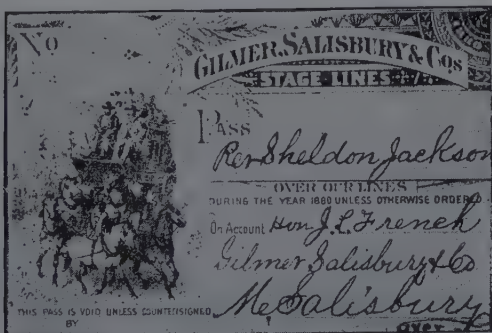 No
GILMER, SALISBURY & Cos
STAGE LINES
PASS
Rev Sheldon Jackson
OVER OUR LINES
DURING THE YEAR 1880 UNLESS OTHERWISE ORDERED
On Account Hon J. L. French
Gilmer Salisbury & Co
M. Salisbury
THIS PASS IS VOID UNLESS COUNTERSIGNED
BY